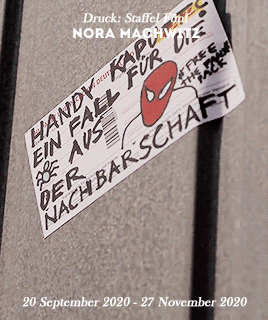 Druck: Staffel Fünf
NORA MACHWITZ
HANDY KAPUTT?
EIN FALL FÜR DIE
AUS
DER
NACHBARSCHAFT
#FREE
THE
20 September 2020 - 27 November 2020